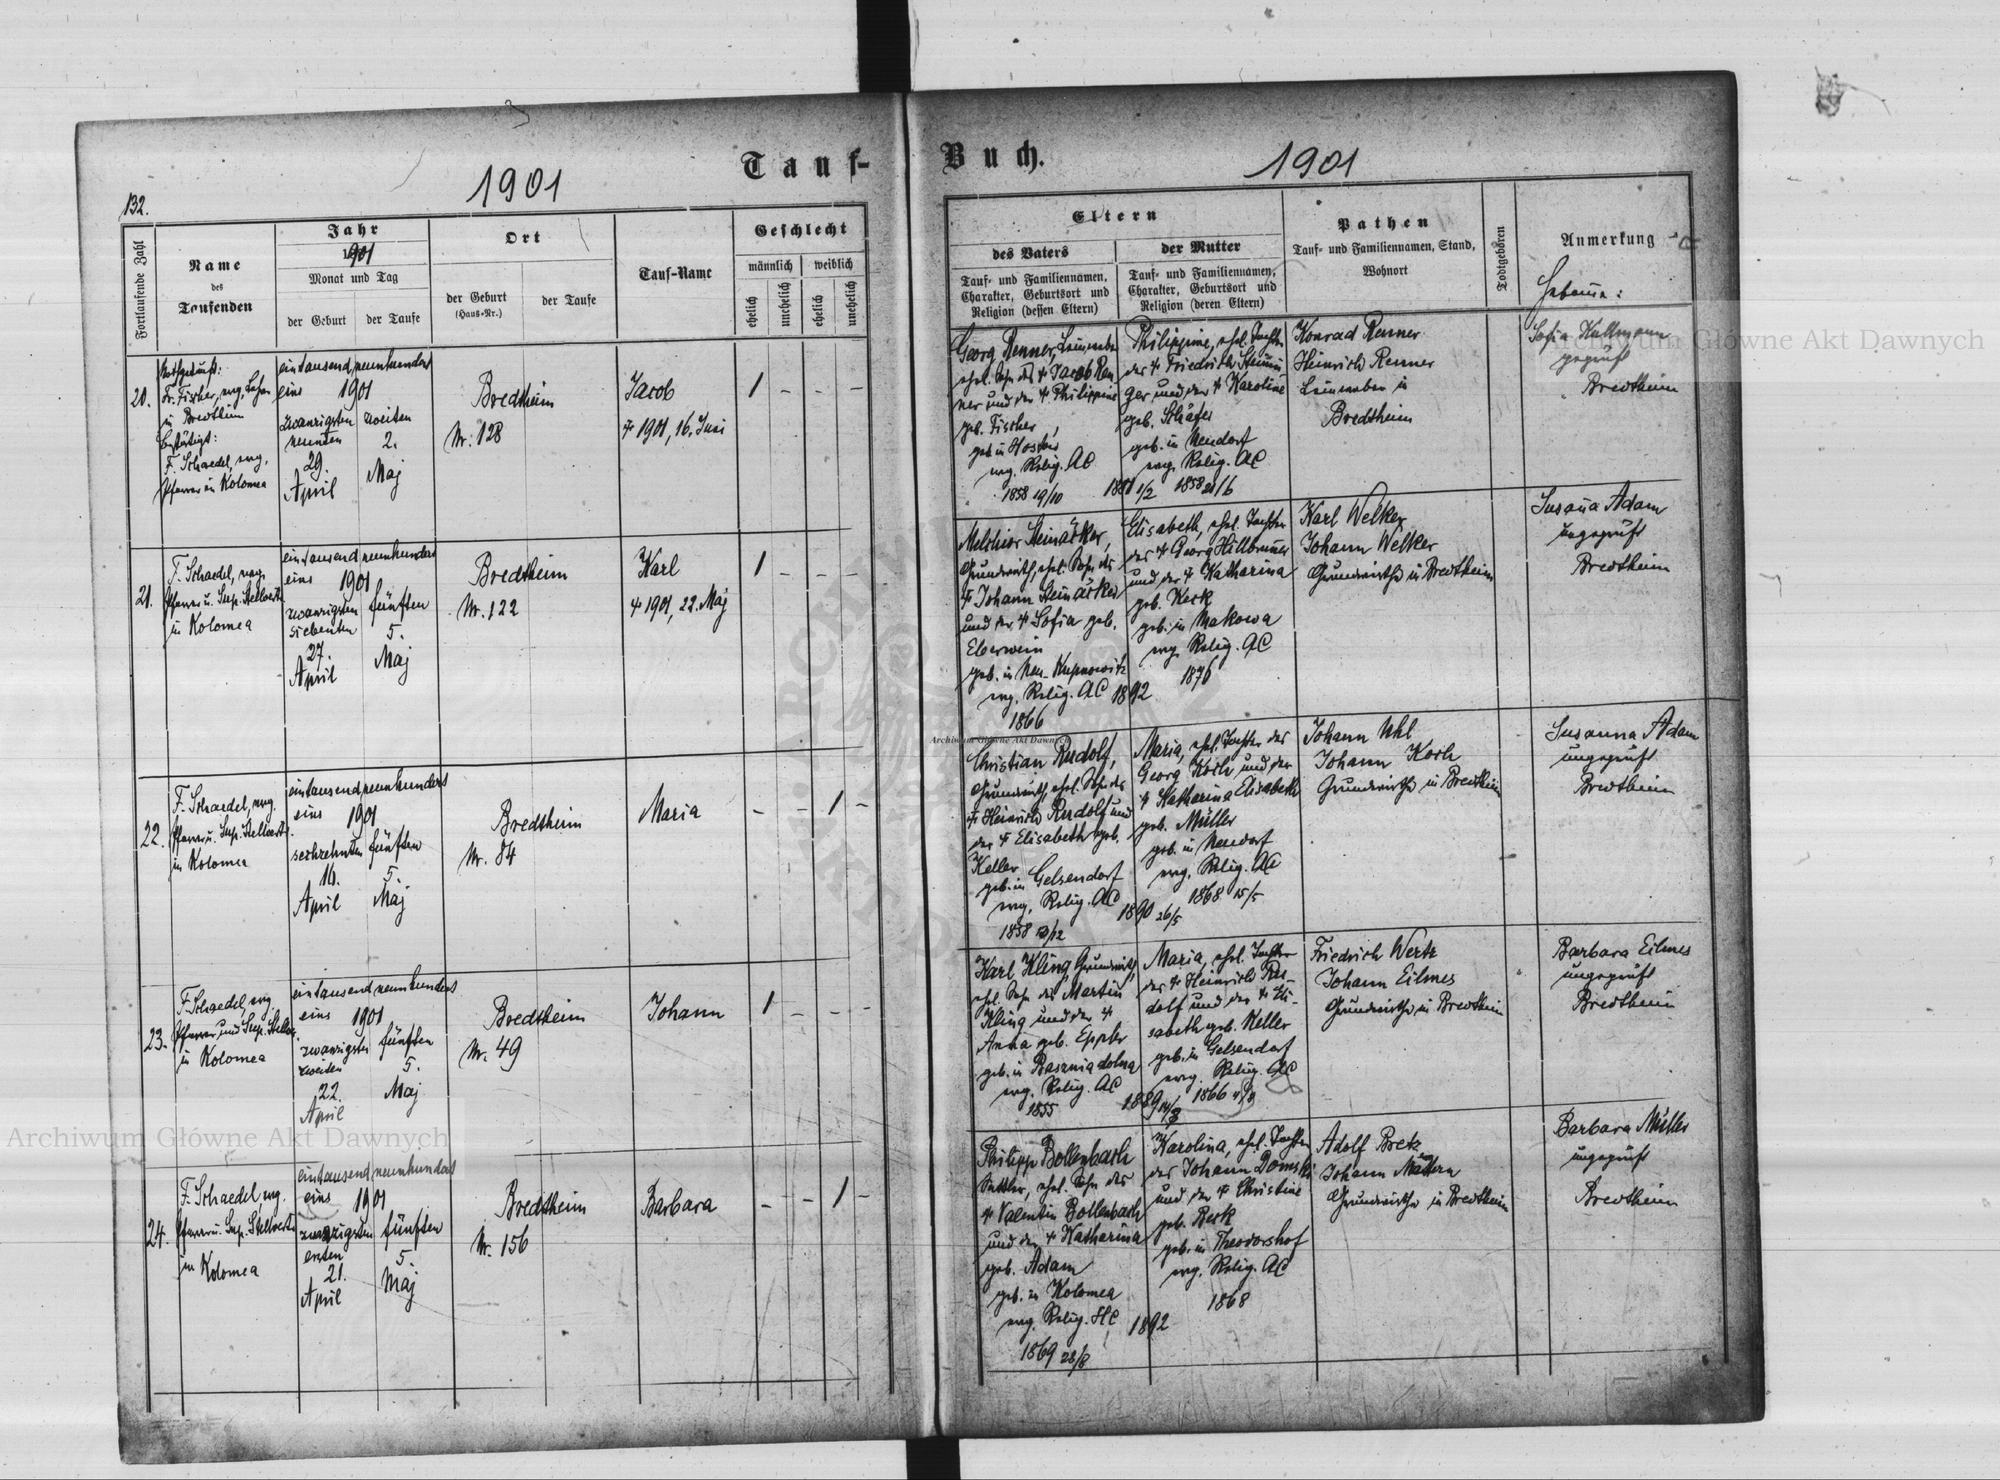 132.
1901
Tauf-
Fortlaufende Zahl
Name
des
Taufenden
Jahr
1901
Monat und Tag
der Geburt
der Taufe
Ort
der Geburt
(Haus-Nr.)
der Taufe
Tauf-Name
Geschlecht
männlich
weiblich
ehelich
unehelich
ehelich
unehelich
20.
Nothgetauft:
Fr. Fischer, evg. Lehrer
in Bredtheim
bestätigt:
F. Schaedel, evg.
Pfarrer in Kolomea
eintausend neunhundert
eins 1901
zwanzigsten zweiten
neunten 2.
29.
April Maj
Bredtheim
Nr. 128
Jacob
† 1901, 16. Juni
1 - - -
21.
F. Schaedel, evg.
Pfarrer u. Sup. Stellvertr.
in Kolomea
eintausend neunhundert
eins 1901
zwanzigsten fünften
siebenten 5.
27.
April Maj
Bredtheim
Nr. 122
Karl
† 1901, 22. Maj
1 - - -
22.
F. Schaedel, evg.
Pfarrer u. Sup. Stellvertr.
in Kolomea
eintausend neunhundert
eins 1901
sechzehnten fünften
16. 5.
April Maj
Bredtheim
Nr. 84
Maria
- - 1 -
23.
F. Schaedel evg.
Pfarrer und Sup. Stellv.
in Kolomea
eintausend neunhundert
eins 1901
zwanzigsten fünften
zweiten 5.
22. Maj
April
Bredtheim
Nr. 49
Johann
1 - - -
24.
F. Schaedel evg.
Pfarrer u. Sup. Stellvertr.
in Kolomea
eintausend neunhundert
eins 1901
zwanzigsten fünften
ersten 5.
21. Maj
April
Bredtheim
Nr. 156
Barbara
- - 1 -
Buch.
1901
Eltern
des Vaters
Tauf- und Familiennamen,
Charakter, Geburtsort und
Religion (dessen Eltern)
der Mutter
Tauf- und Familiennamen,
Charakter, Geburtsort und
Religion (deren Eltern)
Pathen
Tauf- und Familiennamen, Stand,
Wohnort
Todtgeboren
Anmerkung
Hebame:
Georg Renner, Leinweber
ehel. Sohn des † Jacob Ren
ner und der † Philippine
geb. Fischer,
geb. in
evg. Relig. AC
1858 19/10
1881 1/2
Philippine, ehel. Tochter
der † Friedrich
ger und der † Karoline
geb. Schäfer
geb. in Neudorf
evg. Relig. AC
1858 21/6
Konrad Renner
Heinrich Renner
Leinweber in
Bredtheim
Sofia Kullmann
geprüft
Bredtheim
Melchior Steinäcker,
Grundwirth, ehel. Sohn des
† Johann Steinäcker
und der † Sofia geb.
Eberwein
geb. in Neu-Kupnowitz
evg. Relig. AC 1892
1866
Elisabeth, ehel. Tochter
der † Georg Hillbrunner
und der † Katharina
geb. Keck
geb. in Makowa
evg. Relig. AC
1876
Karl Welker
Johann Welker
Grundwirthe in Bredtheim
Susana Adam
ungeprüft
Bredtheim
Christian Rudolf,
Grundwirth, ehel. Sohn des
† Heinrich Rudolf und
der † Elisabeth geb.
Keller
geb. in Gelsendorf
evg. Relig. AC
1858
1890 26/5
Maria, ehel. Tochter des
Georg Koch und der
† Katharina Elisabeth
geb. Müller
geb. in Neudorf
evg. Relig. AC
1868 15/5
Johann Uhl
Johann Koch
Grundwirthe in Bredtheim
Susanna Adam
ungeprüft
Bredtheim
Karl Kling, Grundwirth,
ehel. Sohn des Martin
Kling und der †
Anna geb. Eppler
geb. in Basznia dolna
evg. Relig. AC
1855
Maria, ehel. Tochter
der † Heinrich Ru-
dolf und der † Eli-
sabeth geb. Keller
geb. in Gelsendorf
evg. Relig. AC
1866
Friedrich Wertz
Johann Eilmes
Grundwirthe in Bredtheim
Barbara Eilmes
ungeprüft
Bredtheim
Philipp Bollenbach
Sattler, ehel. Sohn des
† Valentin Bollenbach
und der † Katharina
geb. Adam
geb. in Kolomea
evg. Relig. HC
1869 28/8
1892
Karolina, ehel. Tochter
des Johann Domski
und der † Christine
geb. Beck
geb. in Theodorshof
evg. Relig. AC
1868
Adolf Bretz
Johann Mattern
Grundwirthe in Bredtheim
Barbara Müller
ungeprüft
Bredtheim
Archiwum Główne Akt Dawnych
Archiwum Główne Akt Dawnych
Archiwum Główne Akt Dawnych